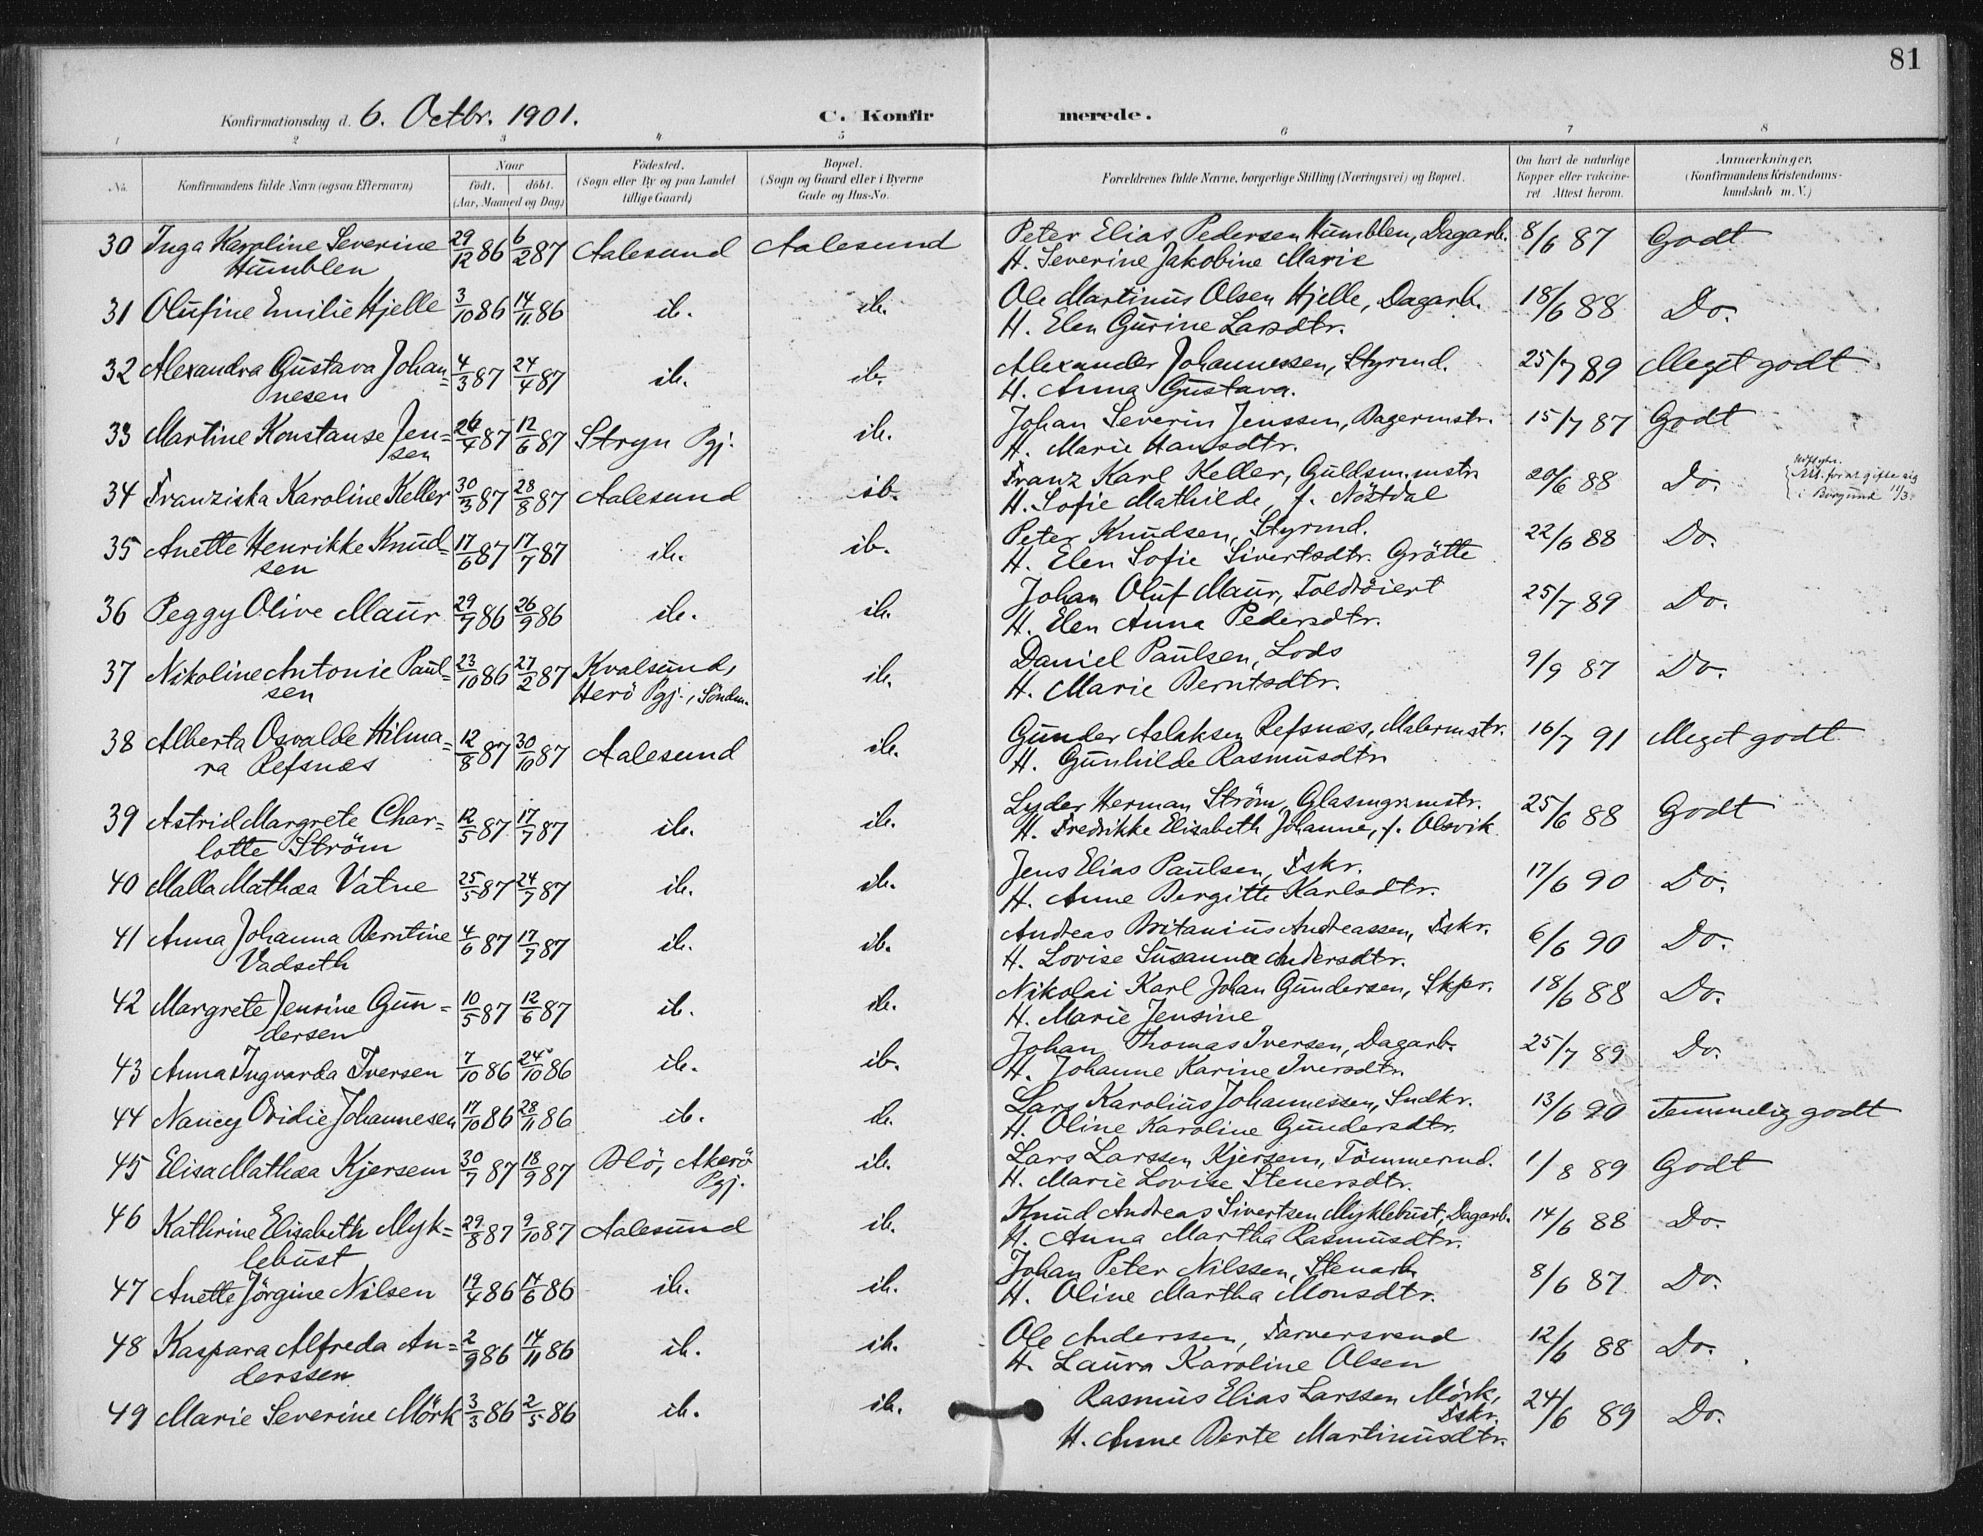 81
Konfirmationsdag d. 6. Octbr. 1901. C. Konfirmerede.
1 2 3 4 5 6 7 8
No. Konfirmandens fulde Navn (ogsaa Efternavn) Naar født. døbt. (Aar, Maaned og Dag) Födested. (Sogn eller By og paa Landet tillige Gaard) Bopæl. (Sogn og Gaard eller i Byerne Gade og Hus-No. Forældrenes fulde Navne, borgerlige Stilling (Næringsvei) og Bopæl. Om havt de naturlige Kopper eller vaccineret Attest herom. Anmærkninger, (Konfirmandens Kristendomskundskab m. V.)
30 Inga Karoline Severine 29/12 86 6/2 87 Aalesund Aalesund Peter Elias Pedersen Humblen, Dagarb. 8/6 87 Godt
Humblen H. Severine Jakobine Marie
31 Olufine Emilie Hjelle 3/10 86 14/11 86 ib. ib. Ole Martinus Olsen Hjelle, Dagarb. 18/6 88 Do.
H. Elen Gurine Larsdtr.
32 Alexandra Gustava Johan= 4/3 87 24/4 87 ib. ib. Alexander Johannessen, Styrmd. 25/7 89 Meget godt
nesen H. Anna Gustava.
33 Martine Konstanse Jen= 26/4 87 12/6 87 Stryn Pgj. ib. Johan Severin Jenssen, Bagermstr. 15/7 87 Godt
sen H. Marie Hansdtr.
34 Franziska Karoline Keller 30/3 87 28/8 87 Aalesund ib. Franz Karl Keller, Guldsm.mstr. 20/6 88 Do. Att. for at gifte sig
H. Sofie Mathilde, f. Nöstdal i Borgund 11/3
35 Anette Henrikke Knud= 17/6 87 17/7 87 ib. ib. Peter Knudsen, Styrmd. 22/6 88 Do.
sen H. Elen Sofie Sivertsdtr. Grötte
36 Peggy Olive Maur 29/7 86 26/9 86 ib. ib. Johan Oluf Maur, Toldröiert 25/7 89 Do.
H. Elen Anna Pedersdtr.
37 Nikoline Antonie Paul= 23/10 86 27/2 87 Kvalsund, ib. Daniel Paulsen, Lods 9/9 87 Do.
sen Herö Pgj., Söndm. H. Marie Berntsdtr.
38 Alberta Osvalde Hilma= 12/8 87 30/10 87 Aalesund ib. Gunder Aslaksen Refsnæs, Malermstr. 16/7 91 Meget godt
ra Refsnæs H. Gunhilde Rasmusdtr.
39 Astrid Margrete Char= 12/5 87 17/7 87 ib. ib. Lyder Herman Ström, Glasmgr.mstr. 25/6 88 Godt
lotte Ström H. Fredrikke Elisabeth Johanne, f. Olsvik
40 Malla Mathea Vatne 25/5 87 24/7 87 ib. ib. Jens Elias Paulsen, Fskr. 17/6 90 Do.
H. Anne Bergitte Karlsdtr.
41 Anna Johanna Berntine 4/6 87 17/7 87 ib. ib. Andreas Britanius Andreassen, Fskr. 6/6 90 Do.
Vadseth H. Lovise Susanne Andersdtr.
42 Margrete Jensine Gun= 10/5 87 12/6 87 ib. ib. Nikolai Karl Johan Gundersen, Skpr. 18/6 88 Do.
dersen H. Marie Jensine
43 Anna Ingvarda Iversen 7/10 86 24/10 86 ib. ib. Johan Thomas Iversen, Dagarb. 25/7 89 Do.
H. Johanne Karine Iversdtr.
44 Nancy Ovidie Johannesen 17/10 86 28/11 86 ib. ib. Lars Karolius Johannessen, Sndkr. 13/6 90 Temmelig godt
H. Oline Karoline Gundersdtr.
45 Elisa Mathea Kjersem 30/7 87 18/9 87 Blö, Akerö ib. Lars Larssen Kjersem, Tömmermd. 1/8 89 Godt
Pgj. H. Marie Lovise Stenersdtr.
46 Kathrine Elisabeth Myk= 29/8 87 9/10 87 Aalesund ib. Knud Andreas Sivertsen Myklebust, Dagarb. 14/6 88 Do.
lebust H. Anna Martha Rasmusdtr.
47 Anette Jörgine Nilsen 19/4 86 14/6 86 ib. ib. Johan Peter Nilssen, Stenarb. 8/6 87 Do.
H. Oline Martha Monsdtr.
48 Kaspara Alfreda An= 2/9 86 14/11 86 ib. ib. Ole Anderssen, Farversvend 12/6 88 Do.
derssen H. Laura Karoline Olsen
49 Marie Severine Mörk 3/3 86 2/5 86 ib. ib. Rasmus Elias Larssen Mörk, 24/6 89 Do.
Fskr.
H. Anne Berte Martinusdtr.